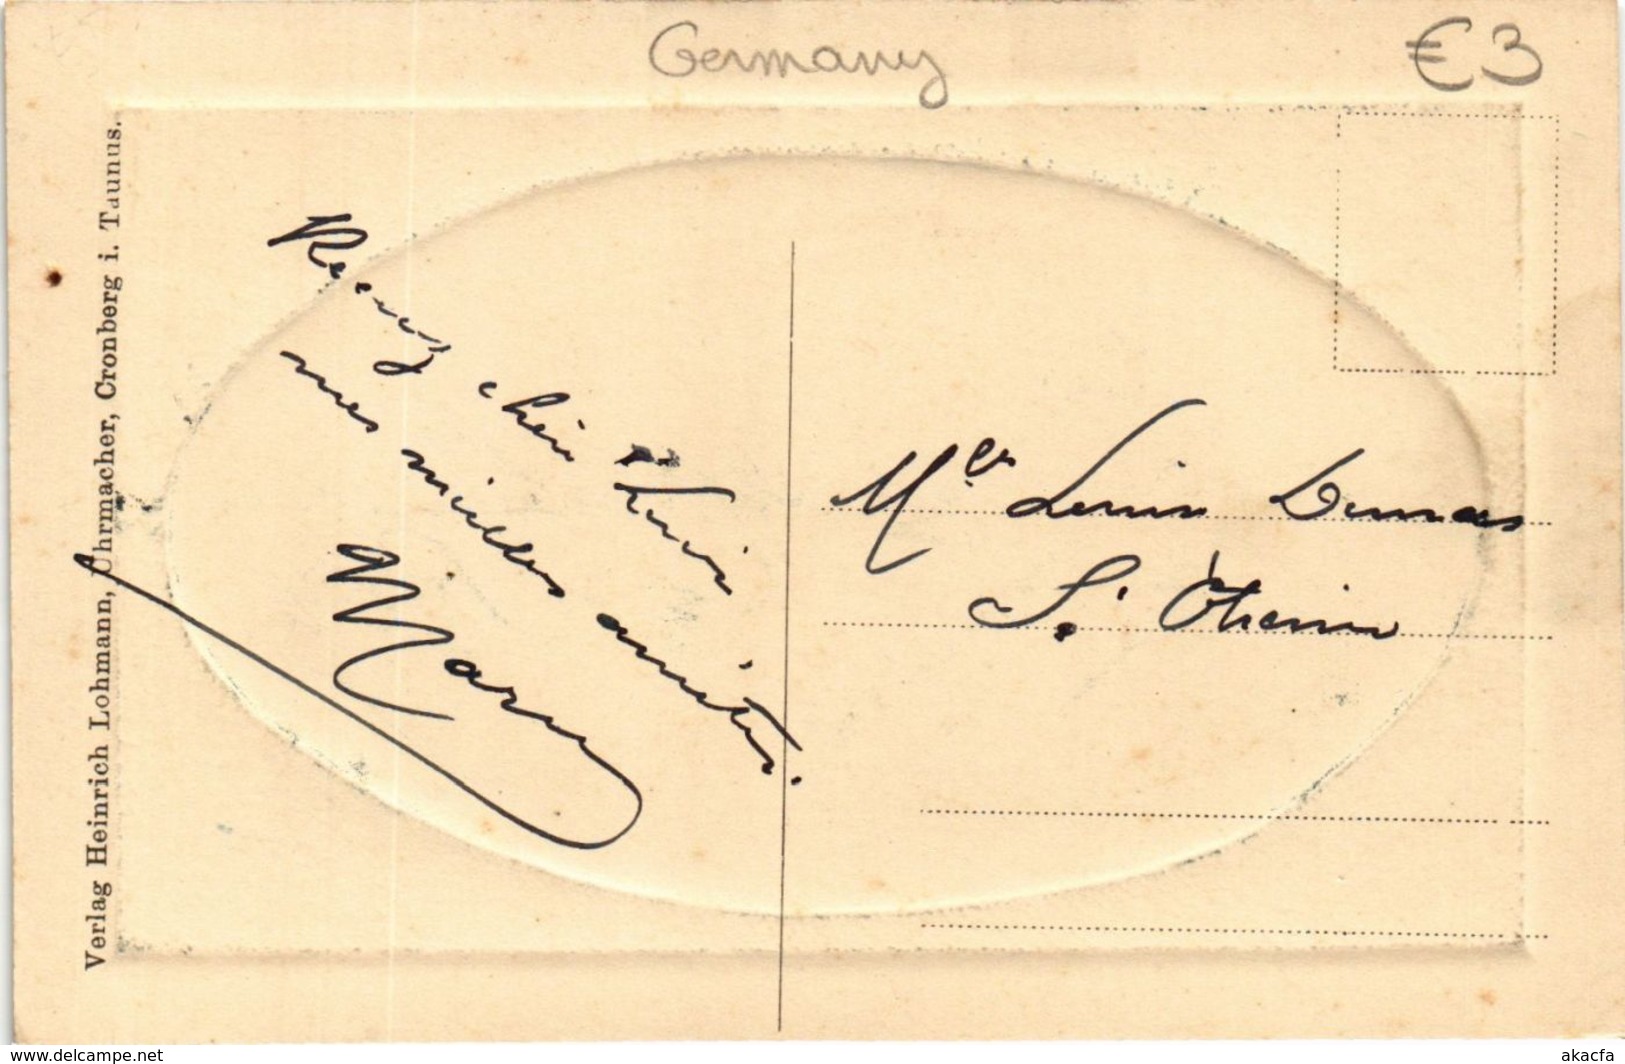 Germany
€3
Verlag Heinrich Lohmann, Uhrmacher, Cronberg i. Taunus.
Recevez cher
mes milles amitiés.
Louis Dumas
St Étienne
www.delcampe.net
akacfa